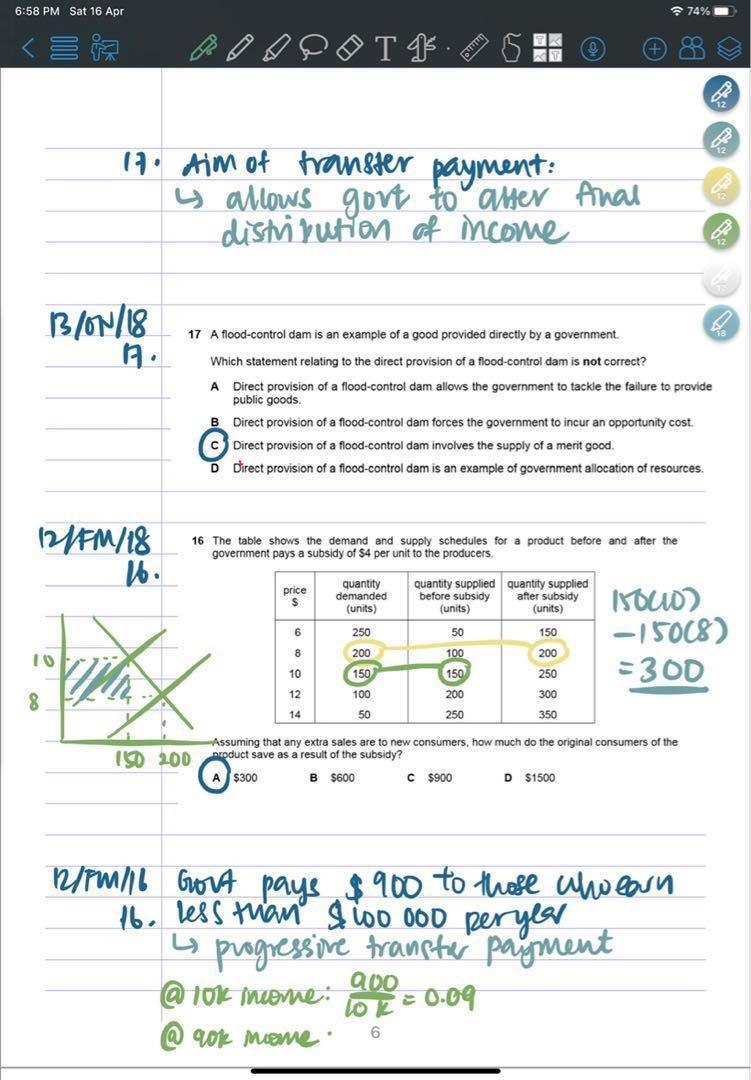 6:58 PM Sat 16 Apr
74%
T
12
12
12
12
12
18
17. Aim of transfer payment:
↳ allows govt to alter final
distribution of income
13/ON/18
17.
17 A flood-control dam is an example of a good provided directly by a government.
Which statement relating to the direct provision of a flood-control dam is not correct?
A Direct provision of a flood-control dam allows the government to tackle the failure to provide
public goods.
B Direct provision of a flood-control dam forces the government to incur an opportunity cost.
C Direct provision of a flood-control dam involves the supply of a merit good.
D Direct provision of a flood-control dam is an example of government allocation of resources.
12/FM/18
16.
16 The table shows the demand and supply schedules for a product before and after the
government pays a subsidy of $4 per unit to the producers.
price $ quantity demanded (units) quantity supplied before subsidy (units) quantity supplied after subsidy (units)
6 250 50 150
8 200 100 200
10 150 150 250
12 100 200 300
14 50 250 350
150(10)
-150(8)
= 300
10
8
150 200
Assuming that any extra sales are to new consumers, how much do the original consumers of the
product save as a result of the subsidy?
A $300 B $600 C $900 D $1500
12/FM/16
16.
Govt pays $900 to those who earn
less than $100 000 per year
↳ progressive transfer payment
@ 10k income: 900/10k = 0.09
@ 90k income:
6